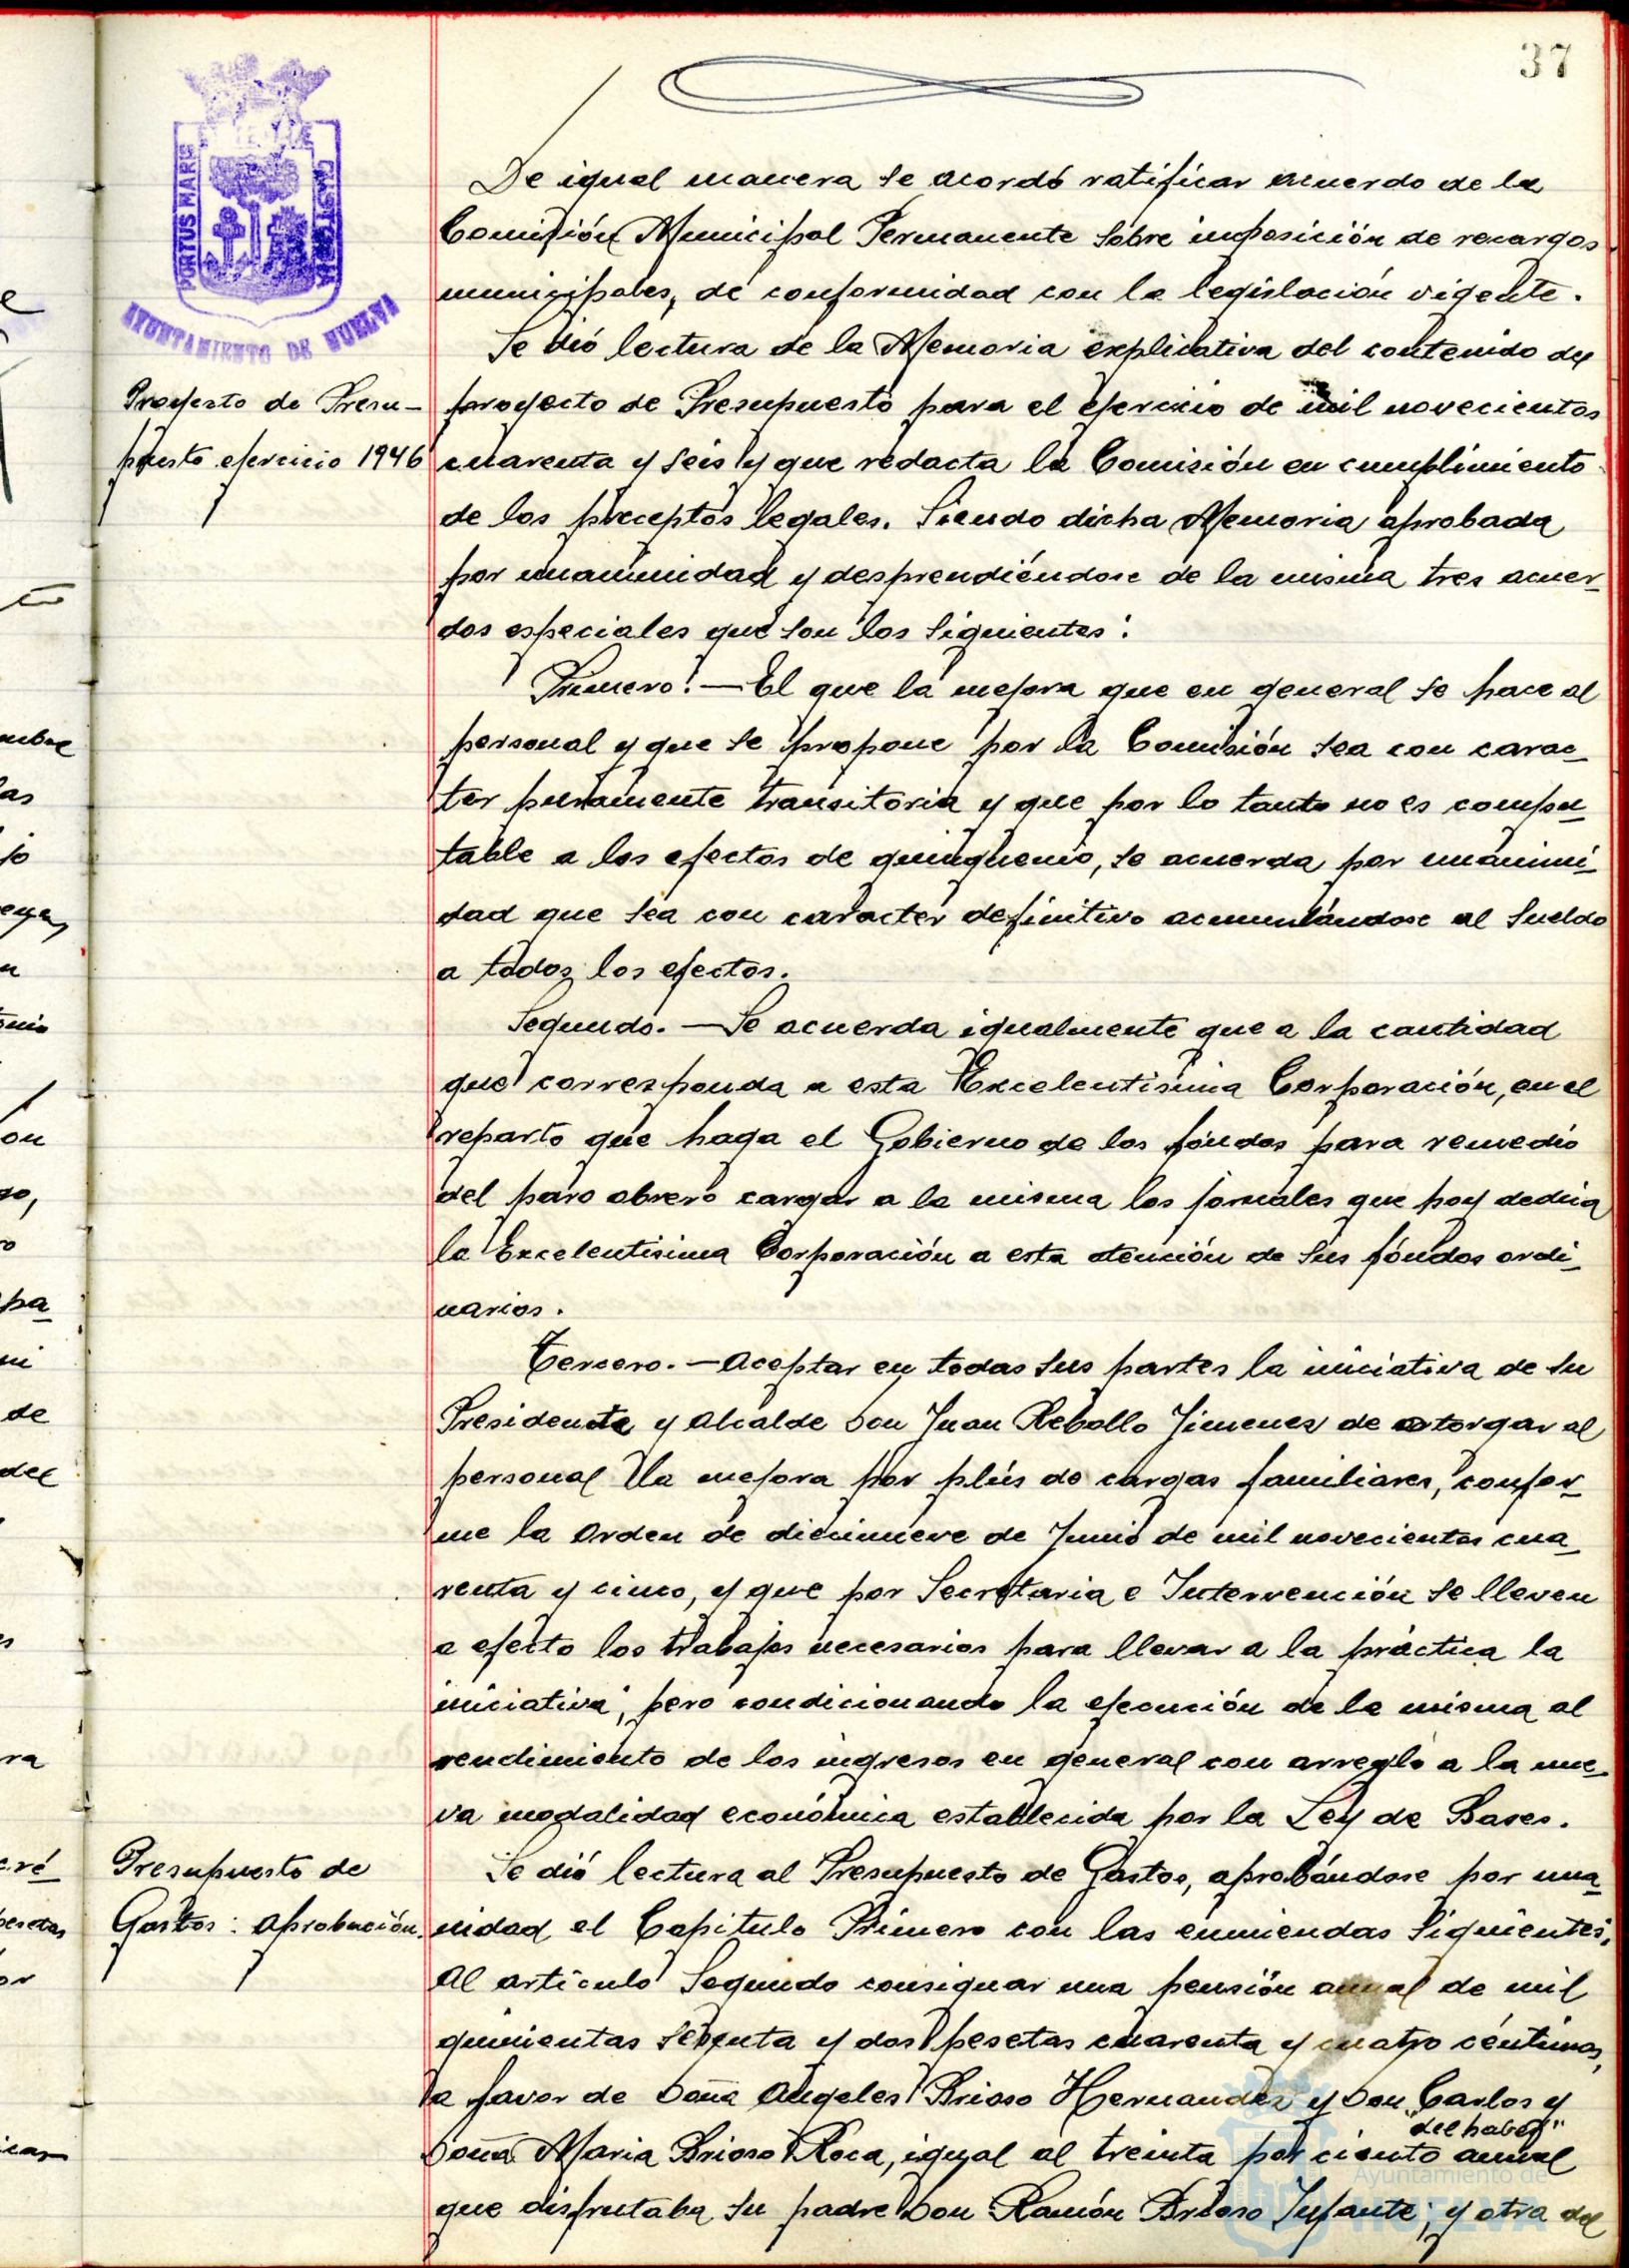 37
PORTUS MARIS
ET TERRAE
CUSTODIA
AYUNTAMIENTO DE HUELVA
De igual manera se acordó ratificar acuerdo de la
Comisión Municipal Permanente sobre imposición de recargos
municipales, de conformidad con la legislación vigente.
Proyecto de Presu-
puesto ejercicio 1946
Se dió lectura de la Memoria explicativa del contenido del
proyecto de Presupuesto para el ejercicio de mil novecientos
cuarenta y seis y que redacta la Comisión en cumplimiento
de los preceptos legales. Siendo dicha Memoria aprobada
por unanimidad y desprendiéndose de la misma tres acuer-
dos especiales que son los siguientes:
Primero.— El que la mejora que en general se hace al
personal y que se propone por la Comisión sea con carac-
ter puramente transitoria y que por lo tanto no es compu-
table a los efectos de quinquenio, se acuerda por unanimi-
dad que sea con caracter definitivo acumulándose al sueldo
a todos los efectos.
Segundo.— Se acuerda igualmente que a la cantidad
que corresponda a esta Excelentisima Corporación, en el
reparto que haga el Gobierno de los fondos para remedio
del paro obrero cargar a la misma los jornales que hoy dedica
la Excelentisima Corporación a esta atención de sus fondos ordi-
narios.
Tercero.— Aceptar en todas sus partes la iniciativa de su
Presidente y Alcalde Don Juan Rebollo Jimenez de otorgar al
personal la mejora por plús de cargas familiares, confor-
me la Orden de diecinueve de Junio de mil novecientos cua-
renta y cinco, y que por Secretaria e Intervención se lleven
a efecto los trabajos necesarios para llevar a la práctica la
iniciativa, pero condicionando la ejecución de la misma al
rendimiento de los ingresos en general con arreglo a la nue-
va modalidad económica establecida por la Ley de Bases.
Presupuesto de
Gastos: Aprobación.
Se dió lectura al Presupuesto de Gastos, aprobándose por una-
nidad el Capitulo Primero con las enmiendas siguientes.
Al artículo Segundo consignar una pensión anual de mil
quinientas y dos pesetas cuarenta y cuatro céntimos,
a favor de Doña Angeles Brioso Hernandez y Don Carlos y
"del haber"
Doña Maria Brioso Roca, igual al treinta por ciento anual
que disfrutaba su padre Don Ramón Brioso Infante; y otra del
Ayuntamiento de
HUELVA